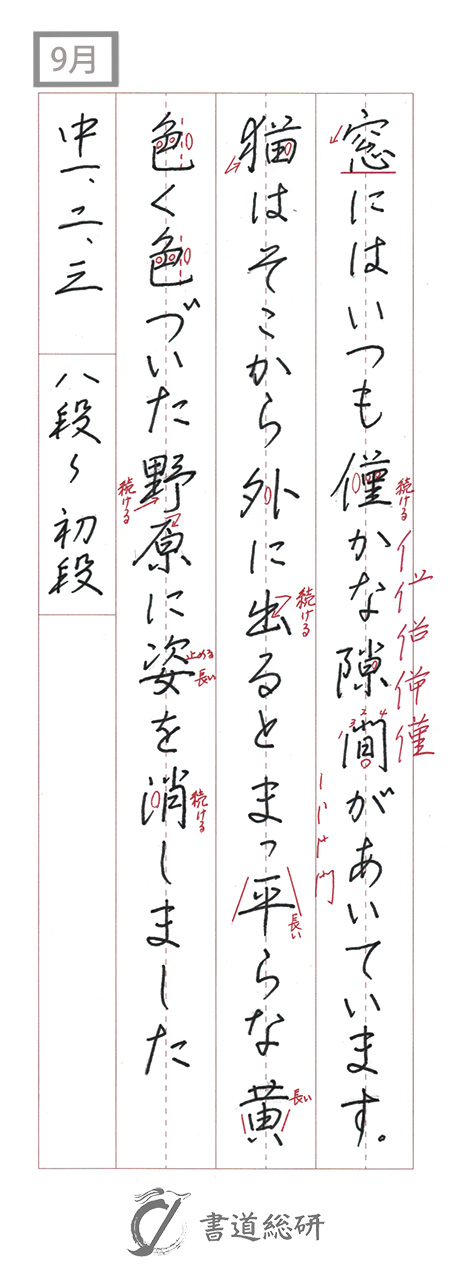 9月
窓にはいつも僅かな隙間があいています。
猫はそこから外に出るとまっ平らな黄
色く色づいた野原に姿を消しました
中一、二、三
八段〜初段
続ける
続ける
長い
長い
続ける
止める
長い
続ける
書道総研